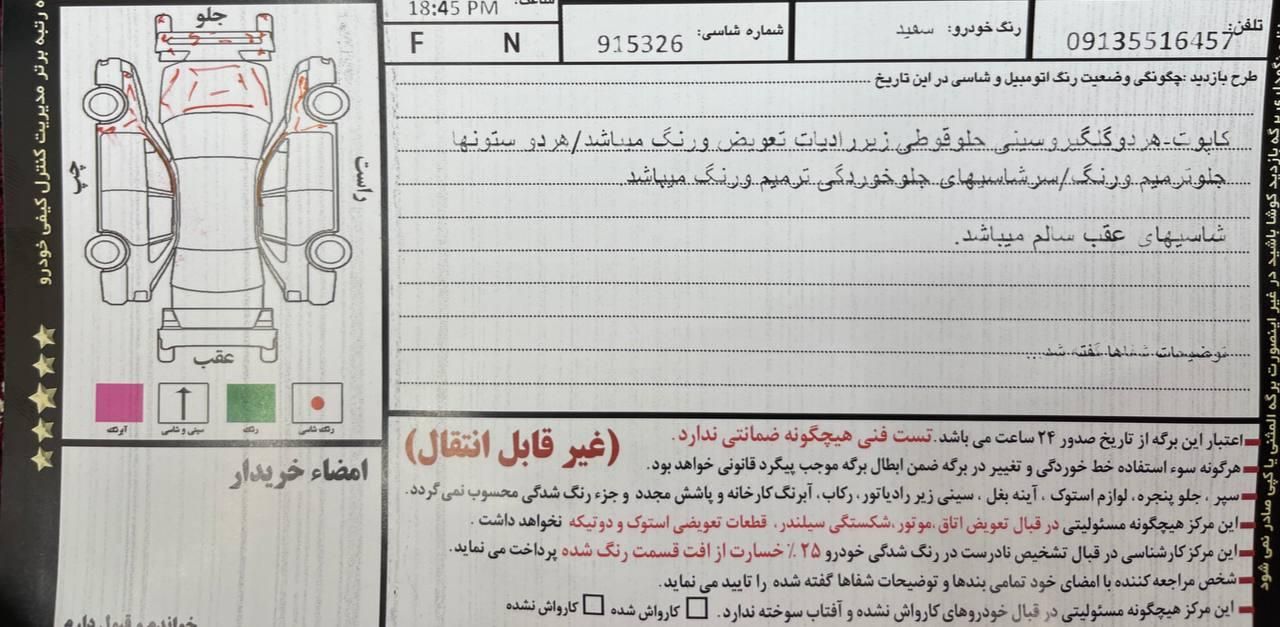 تلفن: 09135516457
رنگ خودرو: سفید
شماره شاسی: 915326
ساعت: 18:45 PM
F N
طرح بازدید :چگونگی وضعیت رنگ اتومبیل و شاسی در این تاریخ
کاپوت-هر دوگلگیروسینی جلوقوطی زیررادیات تعویض ورنگ میباشد/هردو ستونها
جلوترمیم ورنگ/سرشاسیهای جلوخوردگی ترمیم ورنگ میباشد
شاسیهای عقب سالم میباشد.
توضیحات شفاها گفته شد...
جلو
راست
چپ
عقب
رنگ شاسی
رنگ
سینی و شاسی
آبرنگ
امضاء خریدار
خوانده و قبول دارم
اعتبار این برگه از تاریخ صدور ۲۴ ساعت می باشد. تست فنی هیچگونه ضمانتی ندارد.
(غیر قابل انتقال)
هرگونه سوء استفاده خط خوردگی و تغییر در برگه ضمن ابطال برگه موجب پیگرد قانونی خواهد بود.
سپر ، جلو پنجره، لوازم استوک ، آینه بغل ، سینی زیر رادیاتور، رکاب، آبرنگ کارخانه و پاشش مجدد و جزء رنگ شدگی محسوب نمی گردد.
این مرکز هیچگونه مسئولیتی در قبال تعویض اتاق ،موتور،شکستگی سیلندر، قطعات تعویضی استوک و دوتیکه نخواهد داشت .
این مرکز کارشناسی در قبال تشخیص نادرست در رنگ شدگی خودرو ۲۵ ٪ خسارت از افت قسمت رنگ شده پرداخت می نماید.
شخص مراجعه کننده با امضای خود تمامی بندها و توضیحات شفاها گفته شده را تایید می نماید.
این مرکز هیچگونه مسئولیتی در قبال خودروهای کارواش نشده و آفتاب سوخته ندارد. کارواش شده کارواش نشده
رتبه برتر مدیریت کنترل کیفی خودرو
بازدید کوشا باشید در غیر اینصورت برگه المثنی یا کپی صادر نمی شود